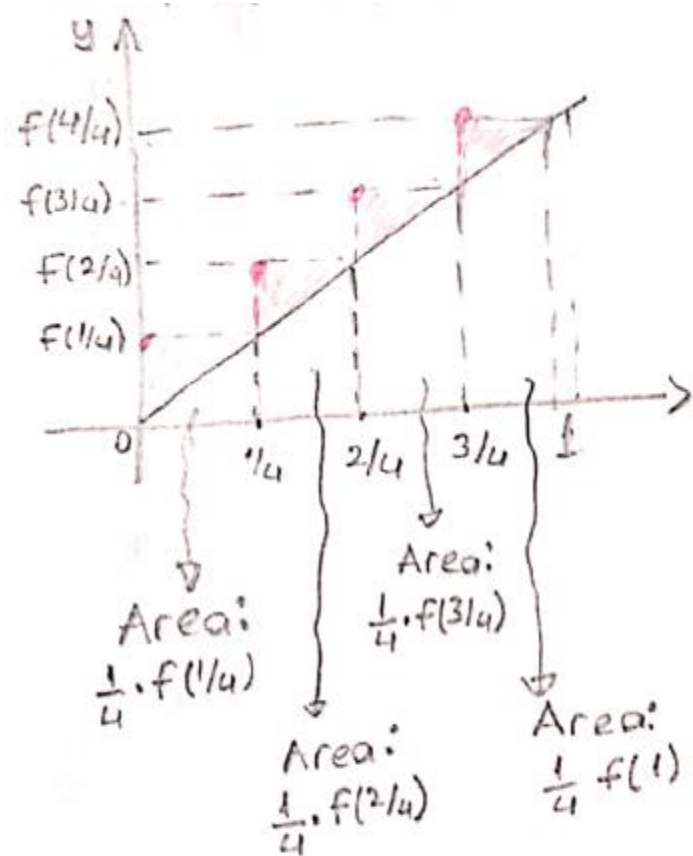 y
f(4/4)
f(3/4)
f(2/4)
f(1/4)
0
1/4
2/4
3/4
1
Area:
1/4 · f(1/4)
Area:
1/4 · f(2/4)
Area:
1/4 · f(3/4)
Area:
1/4 f(1)